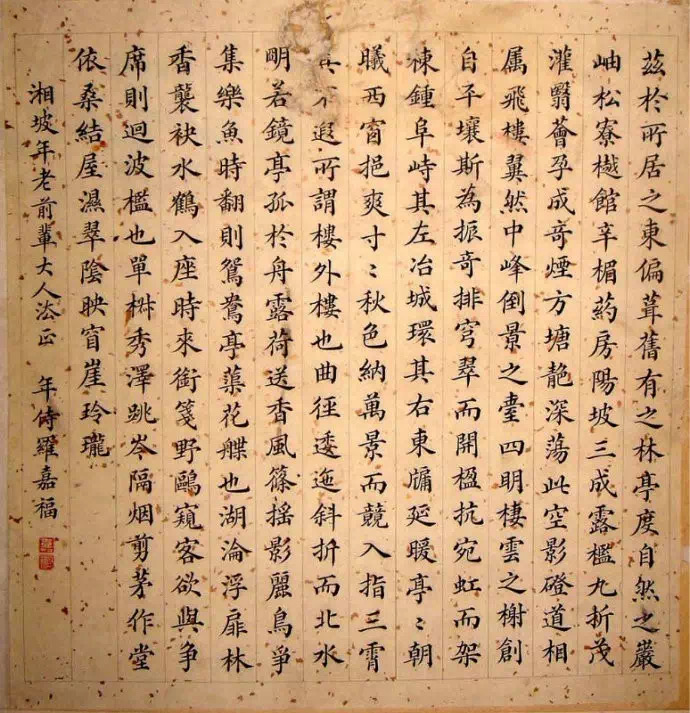 茲於所居之東偏葺舊有之林亭度自然之巖
岫松寮樾館辛楣葯房陽坡三成露檻九折茂
灌翳薈孕成奇煙方塘靘深蕩此空影磴道相
属飛樓翼然中峰倒景之臺四明棲雲之榭創
自平壤斯為振奇排穹翠而開楹抗宛虹而架
棟鍾阜峙其左冶城環其右東牖延暖亭〻朝
曦西窗挹爽寸〻秋色納萬景而競入指三霄
其不遐所謂樓外樓也曲徑逶迤斜折而北水
明若鏡亭孤於舟露荷送香風篠揺影麗鳥爭
集樂魚時翻則鴛鴦亭蕖花艓也湖淪浮扉林
香襲袂水鶴入座時來銜箋野鷗窺客欲與爭
席則迴波檻也單椒秀澤跳岑隔烟剪茅作堂
依桑結屋濕翠陰映窅崖玲瓏
湘坡年老前輩大人法正 年侍羅嘉福